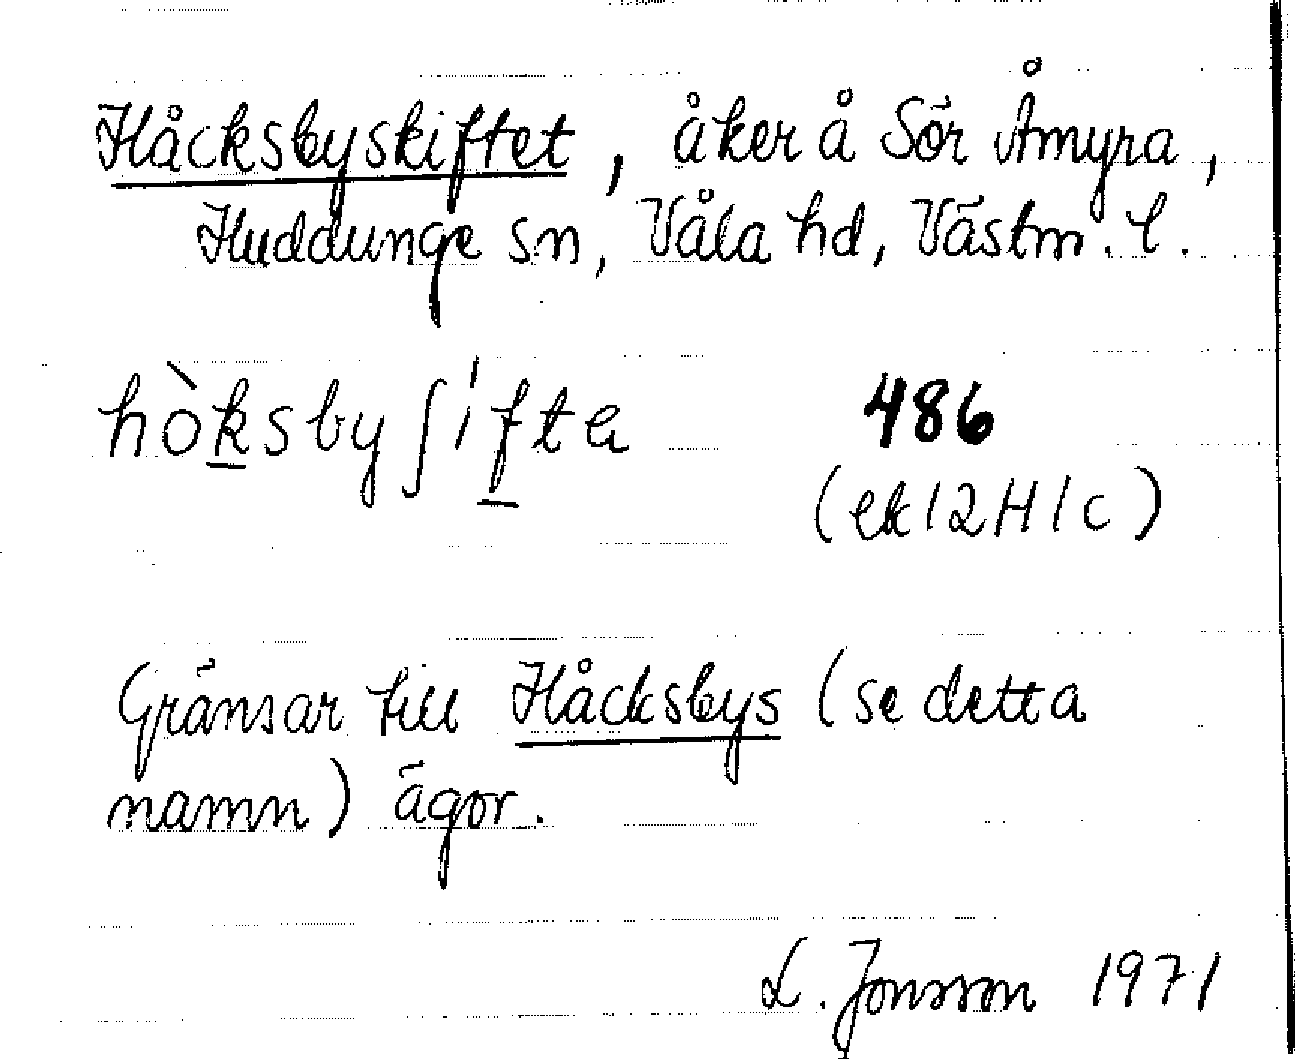 Håcksbyskiftet, åker å Sör Åmyra,
Huddunge sn, Våla hd, Västm. l.
hòksbyʃifta 486
(ek 12H1c)
Gränsar till Håcksbys (se detta
namn) ägor.
L. Jonsson 1971